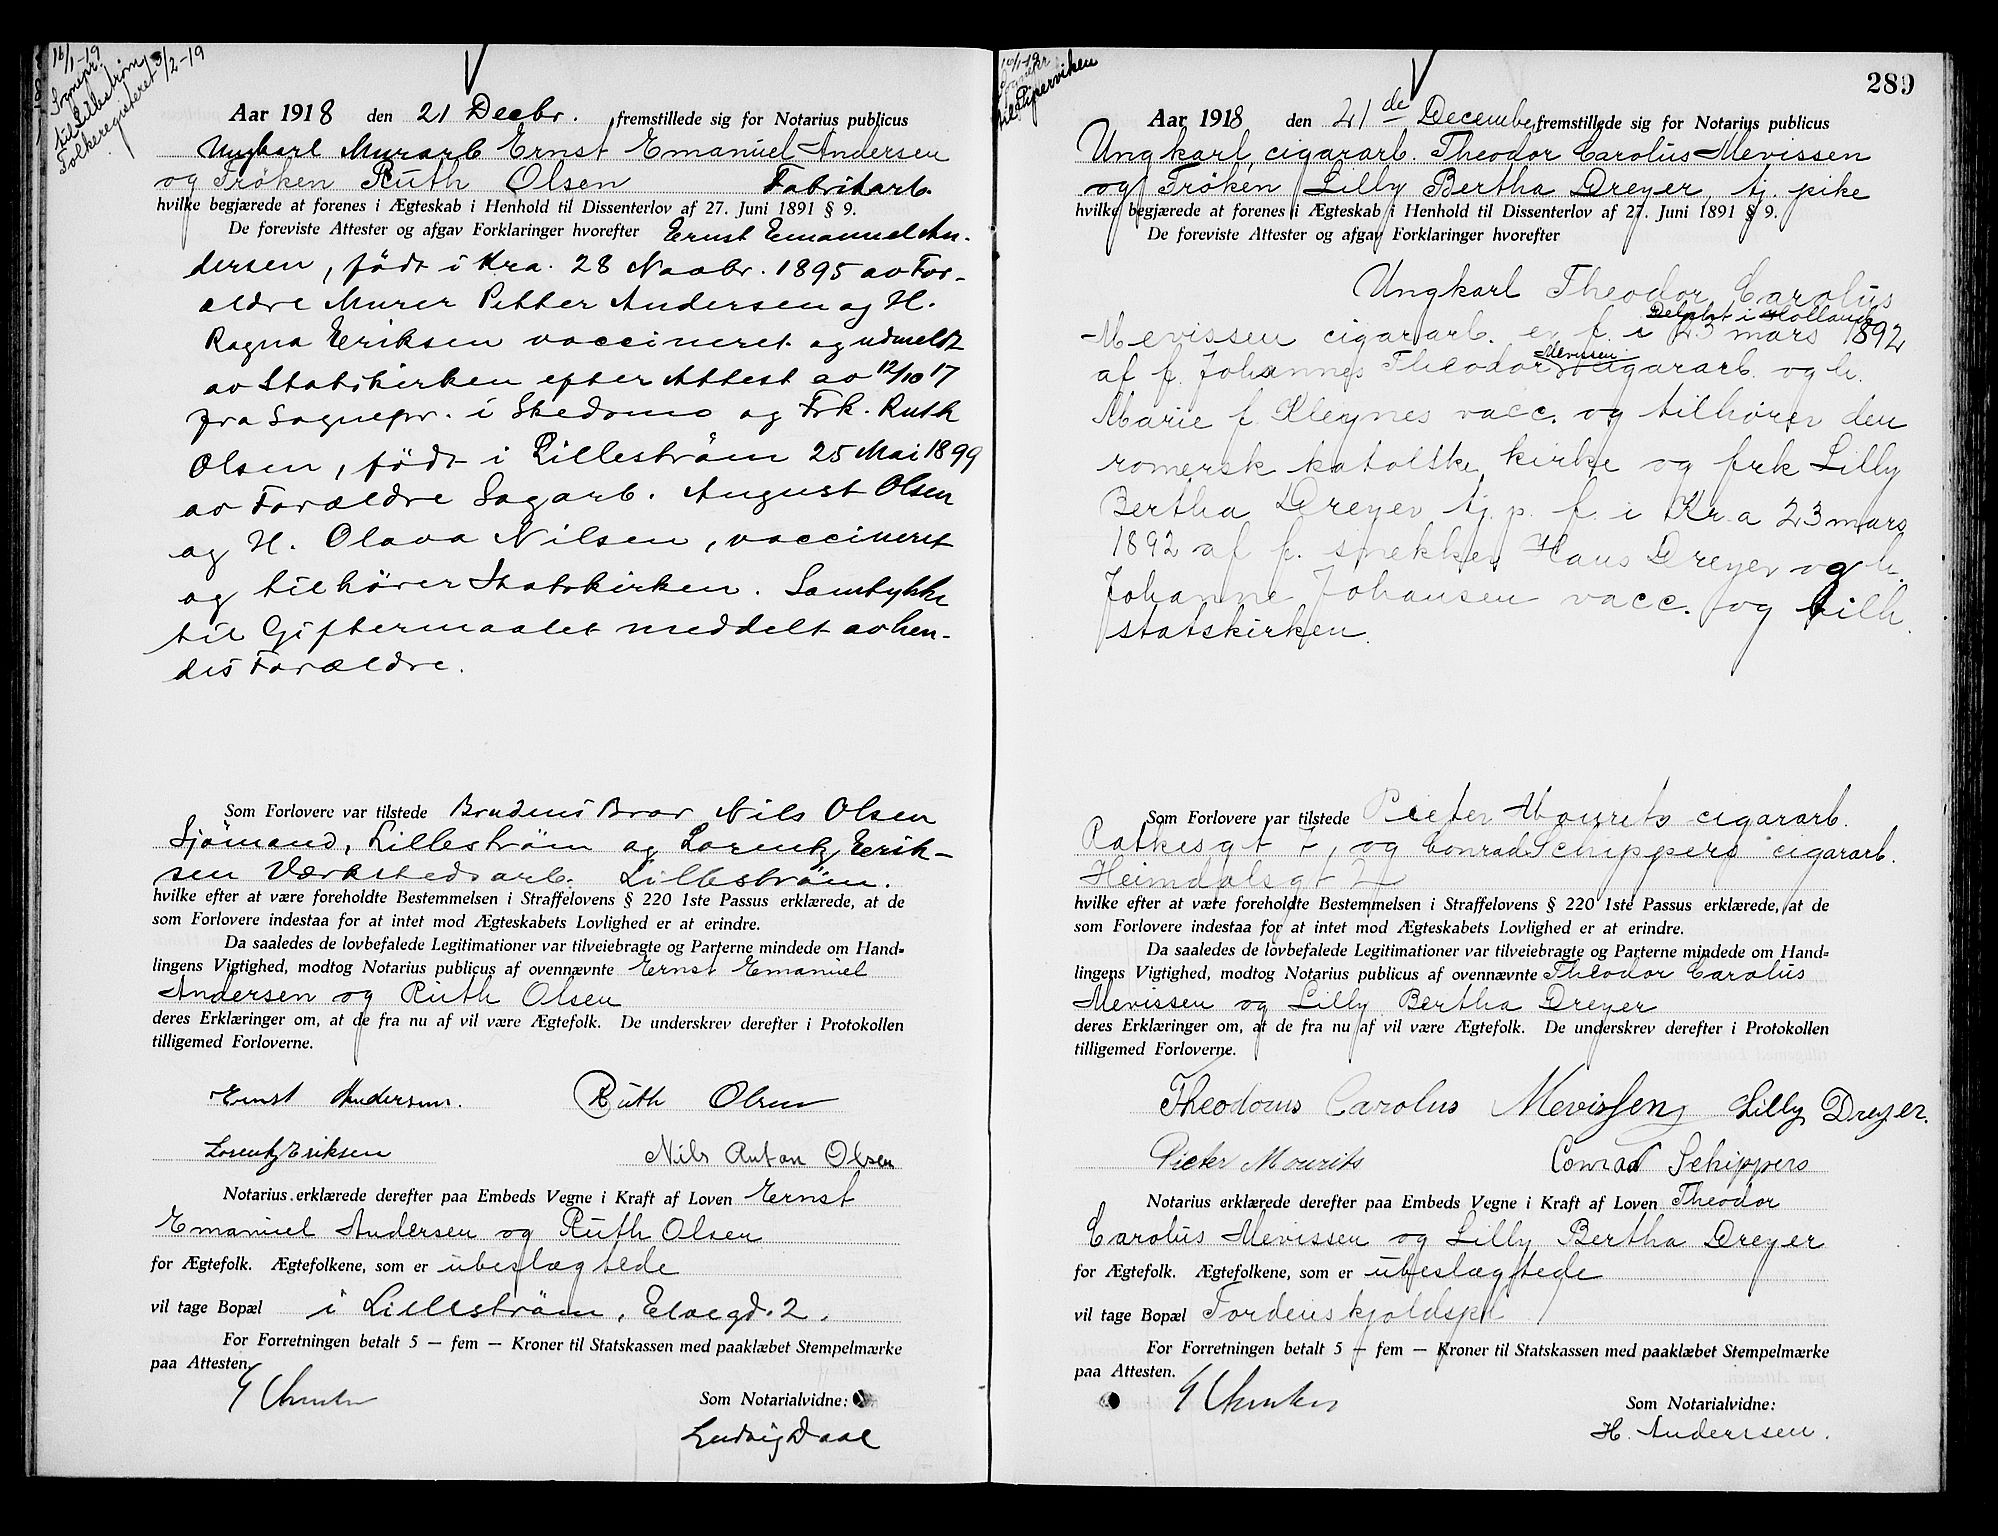 16/1-19
Sognepr.
til Lillestrøm
Folkeregisteret 3/2-19
Aar 1918 den 21 Decbr. fremstillede sig for Notarius publicus
Ungkarl Murarb Ernst Emanuel Andersen
og Frøken Ruth Olsen Fabrikarb.
hvilke begjærede at forenes i Ægteskab i Henhold til Dissenterlov af 27. Juni 1891 § 9.
De foreviste Attester og afgav Forklaringer hvorefter Ernst Emanuel An-
dersen, født i Kra. 28 Novbr. 1895 av For-
ældre Murer Petter Andersen og H.
Ragna Eriksen vaccineret og udmeldt
av Statskirken efter Attest av 12/10 17
fra Sognepr. i Skedsmo og Frk. Ruth
Olsen, født i Lillestrøm 25 Mai 1899
av Forældre Sagarb. August Olsen
og H. Olava Nilsen, vaccineret
og tilhører Statskirken. Samtykke
til Giftermaalet meddelt av hen-
des Forældre.
Som Forlovere var tilstede Brudens Bror Nils Olsen
Sjömand, Lillestrøm og Lorentz Erik-
sen Værkstedsarb. Lillestrøm.
hvilke efter at være foreholdte Bestemmelsen i Straffelovens § 220 1ste Passus erklærede, at de
som Forlovere indestaa for at intet mod Ægteskabets Lovlighed er at erindre.
Da saaledes de lovbefalede Legitimationer var tilveiebragte og Parterne mindede om Hand=
lingens Vigtighed, modtog Notarius publicus af ovennævnte Ernst Emanuel
Andersen og Ruth Olsen
deres Erklæringer om, at de fra nu af vil være Ægtefolk. De underskrev derefter i Protokollen
tilligemed Forloverne.
Ernst Andersen. Ruth Olsen
Lorentz Eriksen Nils Anton Olsen
Notarius erklærede derefter paa Embeds Vegne i Kraft af Loven Ernst
Emanuel Andersen og Ruth Olsen
for Ægtefolk. Ægtefolkene, som er ubeslægtede
vil tage Bopæl i Lillestrøm, Elvegd. 2.
For Forretningen betalt 5 — fem — Kroner til Statskassen med paaklæbet Stempelmærke
paa Attesten.
Som Notarialvidne:
Ludvig Daae
til Piperviken
289
Aar 1918 den 21de December fremstillede sig for Notarius publicus
Ungkarl cigararb. Theodor Carolus Mevissen
og Frøken Lilly Bertha Dreyer, tj. pike
hvilke begjærede at forenes i Ægteskab i Henhold til Dissenterlov af 27. Juni 1891 § 9.
De foreviste Attester og afgav Forklaringer hvorefter
Ungkarl Theodor Carolus
i Holland
Mevissen cigararb. er f. i 23 mars 1892
Mevissen
af f. Johannes Theodor cigararb. og h.
Marie f. Kleynes vacc. og tilhører den
romersk katolske kirke og frk Lilly
Bertha Dreyer tj. p. f. i Kr.a 23 mars
1892 af f. snekker Hans Dreyer og h.
Johanne Johansen vacc. og tilh.
statskirken.
Som Forlovere var tilstede Pieter Mourits cigararb.
og Conrad Schippers cigararb.
Heimdalsgt 2
hvilke efter at være foreholdte Bestemmelsen i Straffelovens § 220 1ste Passus erklærede, at de
som Forlovere indestaa for at intet mod Ægteskabets Lovlighed er at erindre.
Da saaledes de lovbefalede Legitimationer var tilveiebragte og Parterne mindede om Hand=
lingens Vigtighed, modtog Notarius publicus af ovennævnte Theodor Carolus
Mevissen og Lilly Bertha Dreyer
deres Erklæringer om, at de fra nu af vil være Ægtefolk. De underskrev derefter i Protokollen
tilligemed Forloverne.
Theodorus Carolus Mevissen Lilly Dreyer.
Pieter Mourits Conrad Schippers
Notarius erklærede derefter paa Embeds Vegne i Kraft af Loven Theodor
Carolus Mevissen og Lilly Bertha Dreyer
for Ægtefolk. Ægtefolkene, som er ubeslægtede
vil tage Bopæl Tordenskjoldspl
For Forretningen betalt 5 — fem — Kroner til Statskassen med paaklæbet Stempelmærke
paa Attesten.
Som Notarialvidne:
H. Anderssen.